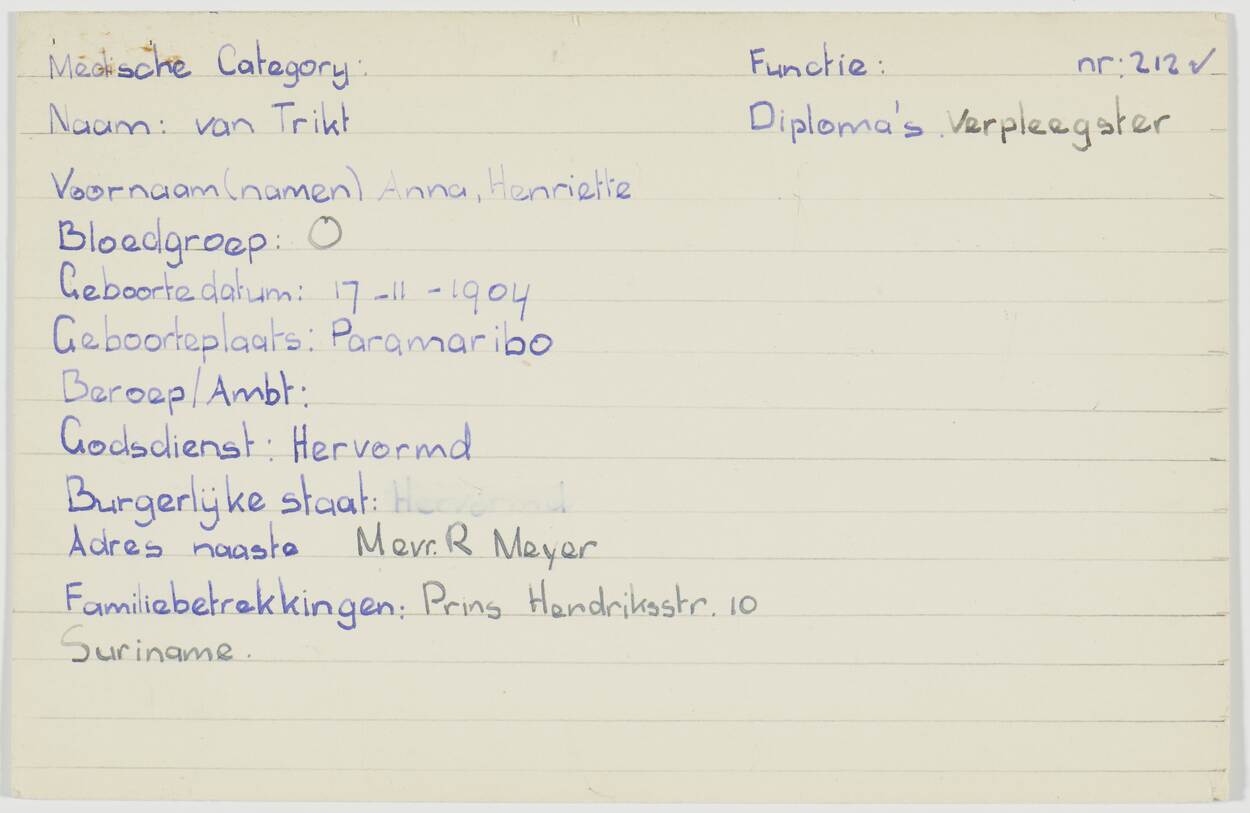 Medische Category: Functie: nr: 212 ✓
Naam: van Trikt Diploma's. Verpleegster
Voornaam(namen) Anna, Henriette
Bloedgroep: O
Geboortedatum: 17-11-1904
Geboorteplaats: Paramaribo
Beroep/Ambt:
Godsdienst: Hervormd
Burgerlijke staat: Hervormd
Adres naaste Mevr. R Meyer
Familiebetrekkingen: Prins Hendriksstr. 10
Suriname.